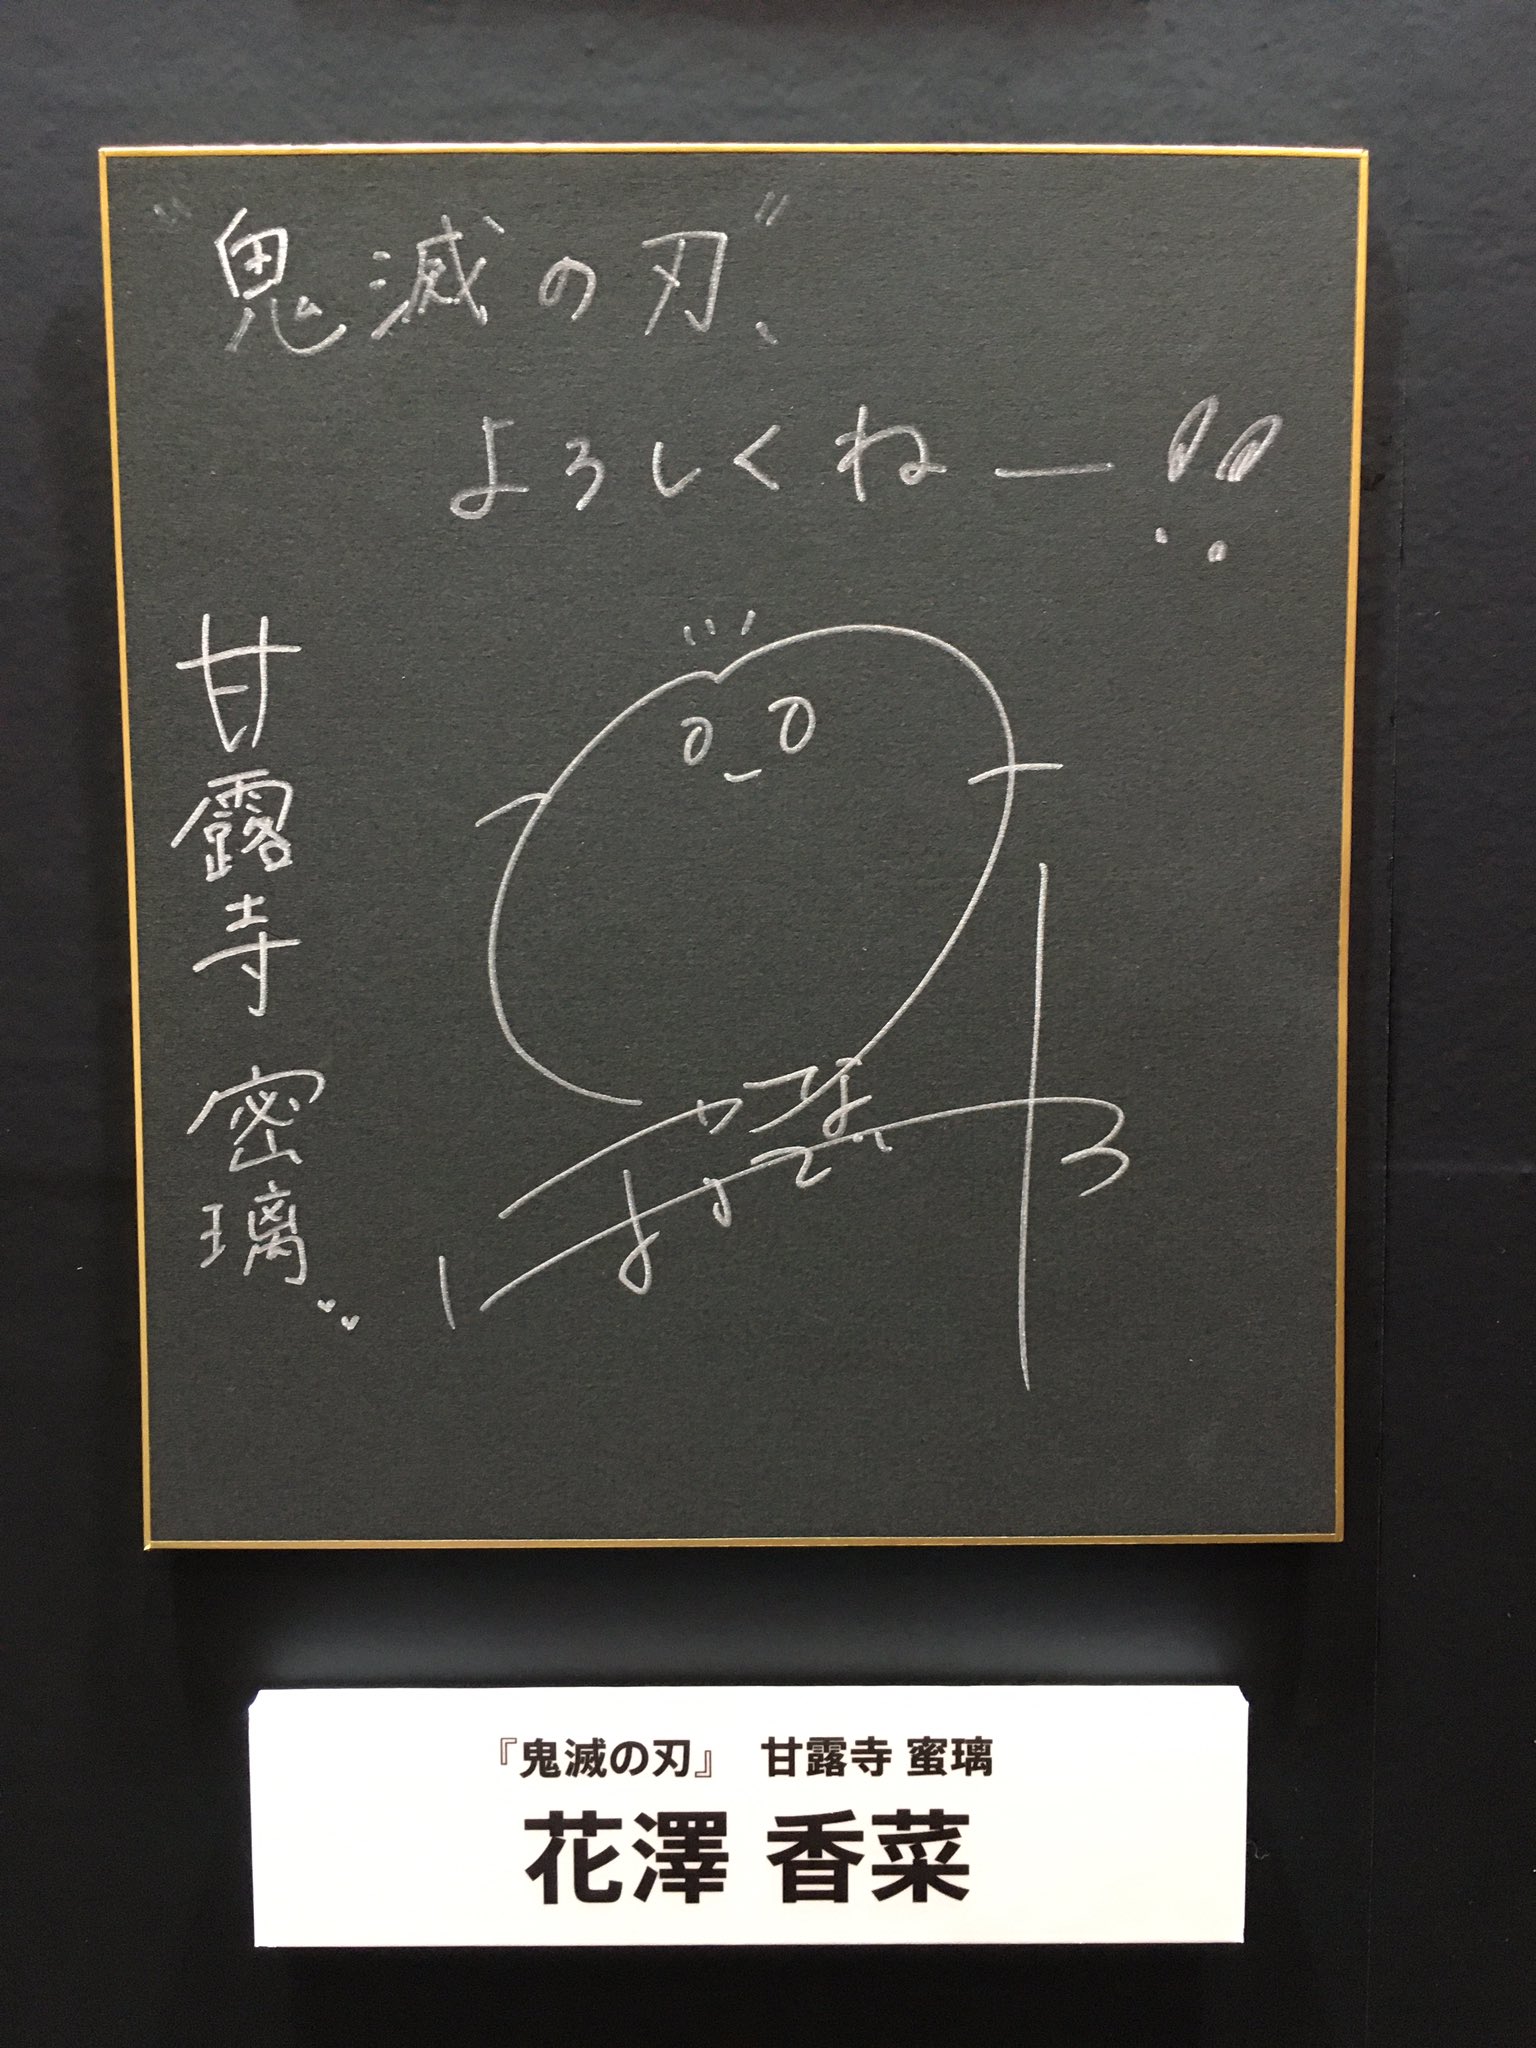 "鬼滅の刃"、
よろしくねー!!
甘露寺 密璃
『鬼滅の刃』 甘露寺 蜜璃
花澤 香菜